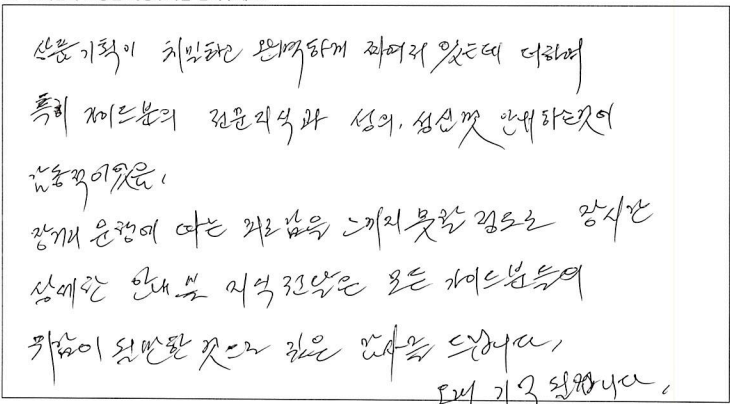 상품기획이 치밀하고 완벽하게 짜여져 있는데 더하여
특히 가이드분의 전문지식과 성의, 성심껏 안내하는것이
감동적이였음,
장거리 운행에 따른 피로감을 느끼지 못할 정도로 장시간
상세한 안내 및 지식전달은 모든 가이드분들의
귀감이 될만한 것으로 깊은 감사를 드립니다,
오래 기억 될겁니다.